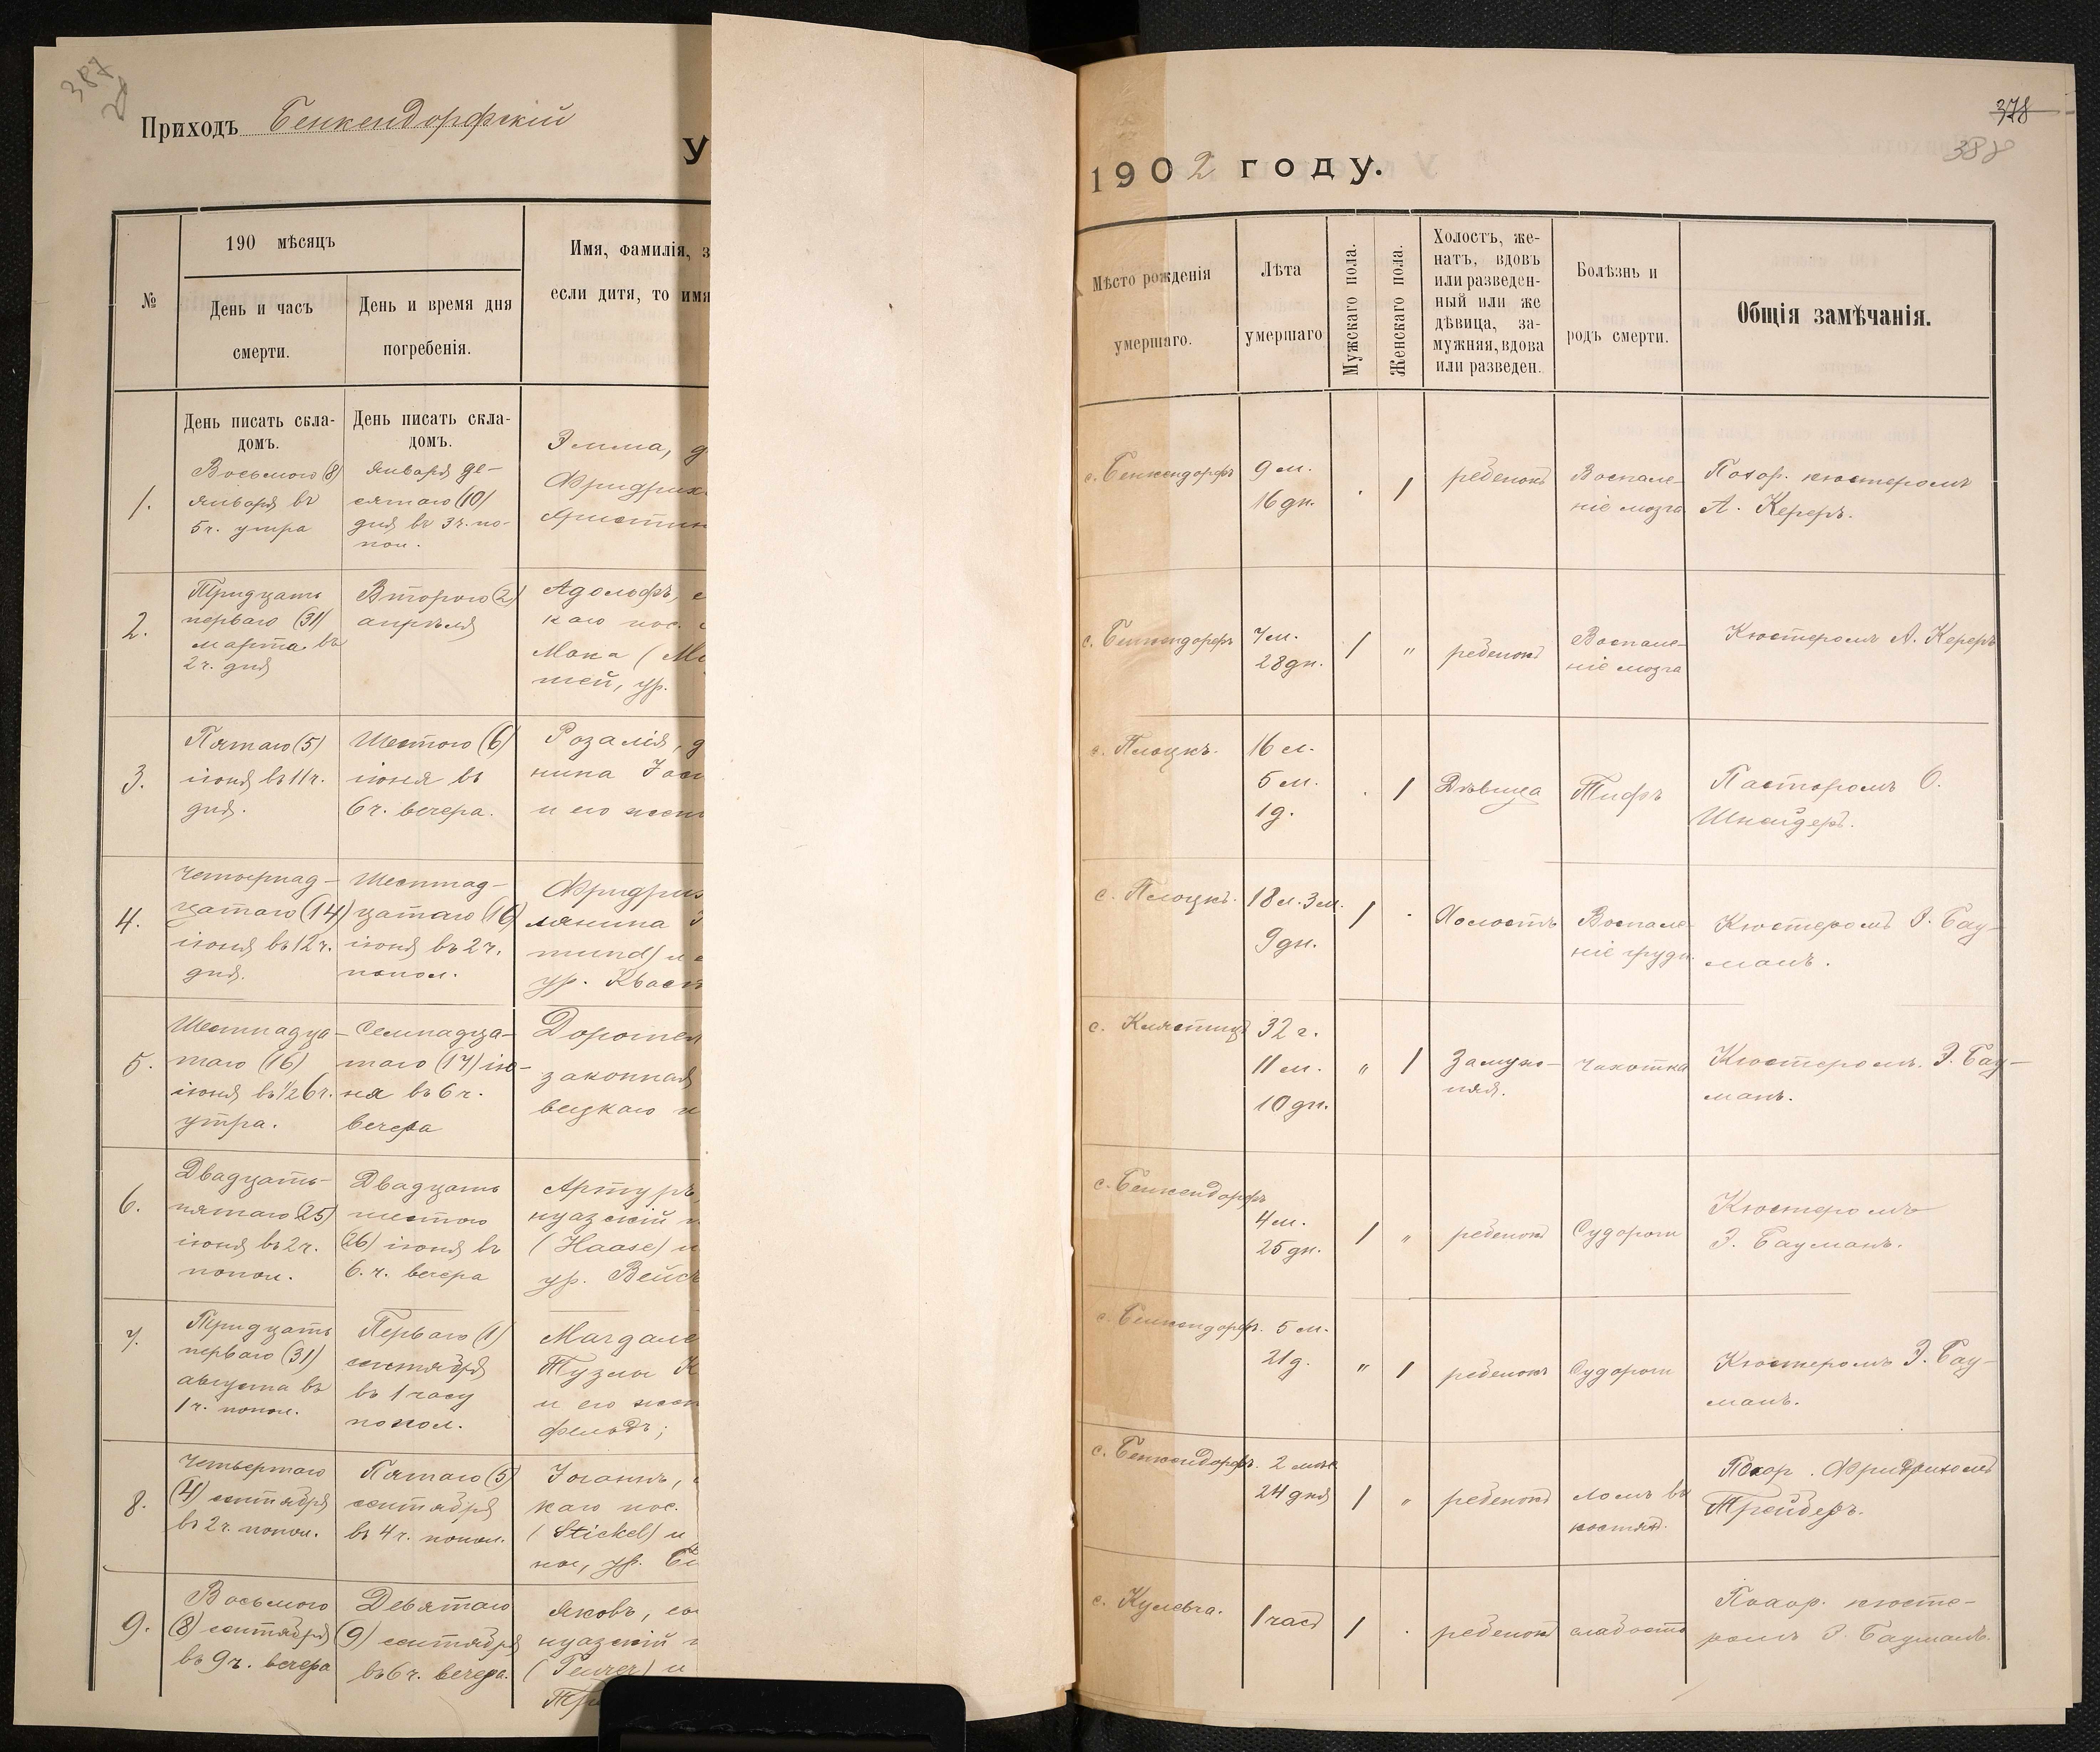 387
Приходъ Бенкендорфскій
У
№
190 мѣсяцъ
День и часъ
смерти.
День и время дня
погребенія.
Имя, фамилія, з
если дитя, то имя
День писать скла-
домъ.
День писать скла-
домъ.
1.
Восьмого (8)
января въ
5 ч. утра
Января де-
сятаго (10)
дня въ 3 ч. по-
пол.
Эмма, д
Фридрих
Христин
2.
Тридцать
перваго (31)
марта въ
2 ч. дня
Второго (2)
апрѣля
Адольфъ, с
каго пос.
Мака (Ma
шей, ур.
3.
Пятаго (5)
іюня въ 11 ч.
дня.
Шестого (6)
іюня въ
6 ч. вечера.
Розалія, д
нина
и его жен
4.
Четырнад-
цатаго (14)
іюня въ 12 ч.
дня.
Шестнад-
цатаго (16)
іюня въ 2 ч.
попол.
Фридрих
лянина
mund) и е
ур. Кваст
5.
Шестнадца-
таго (16)
іюня въ 1/2 6 ч.
утра.
Семнадца-
таго (17) ію-
ня въ 6 ч.
вечера
Доротея
законная
вецкаго п
6.
Двадцать-
пятаго (25)
іюня въ 2 ч.
попол.
Двадцать
шестого
(26) іюня въ
6. ч. вечера
Артуръ,
куазскій п
(Haase) и
ур. Вейс
7.
Тридцать
перваго (31)
августа въ
1 ч. попол.
Перваго (1)
сентября
въ 1 часу
попол.
Магдале
Тузлы К
и его жен
фельдъ;
8.
Четвертаго
(4) сентября
въ 2 ч. попол.
Пятаго (5)
сентября
въ 4 ч. попол.
Іоганнъ, с
каго пос.
(Stickel) и
ное, ур. Би
9.
Восьмого
(8) сентября
въ 9 ч. вечера
Девятаго
(9) сентября
въ 6 ч. вечера.
Яковъ, сы
куазскій п
и
Тр
378
388
1902 году.
Мѣсто рожденія
умершаго.
Лѣта
умершаго
Мужскаго пола.
Женскаго пола.
Холостъ, же-
натъ, вдовъ
или разведен-
ный или же
дѣвица, за-
мужняя, вдова
или разведен.
Болѣзнь и
родъ смерти.
Общія замѣчанія.
с. Бенкендорфъ
9 м.
16 дн.
.
1
ребенокъ
Воспале-
ніе мозга
Похор. кюстеромъ
А. Кереръ.
с. Бенкендорфъ
7 м.
28 дн.
1
"
ребенокъ
Воспале-
ніе мозга
Кюстеромъ А. Кереръ
с. Плоцкъ.
16 л.
5 м.
1 д.
.
1
Дѣвица
Тифъ
Пасторомъ О.
Шнайдеръ.
с. Плоцкъ.
18 л. 3 м.
9 дн.
1
.
Холостъ
Воспале-
ніе груди.
Кюстеромъ Э. Бау-
манъ.
с. Клястицъ
32 г.
11 м.
10 дн.
"
1
Замуж-
няя.
Чахотка
Кюстеромъ. Э. Бау-
манъ.
с. Бенкендорфъ
4 м.
25 дн.
1
"
ребенокъ
Судороги
Кюстеромъ
Э. Бауманъ.
с. Бенкендорфъ.
5 м.
21 д.
"
1
ребенокъ
Судороги
Кюстеромъ Э. Бау-
манъ.
с. Бенкендорфъ.
2 мѣс.
24 дня
1
"
ребенокъ
ломъ въ
костяхъ.
Похор. Фридрихомъ
Трейдеръ.
с. Кулевча.
1 часъ
1
.
ребенокъ
слабость
Похор. кюсте-
ромъ Э. Бауманъ.